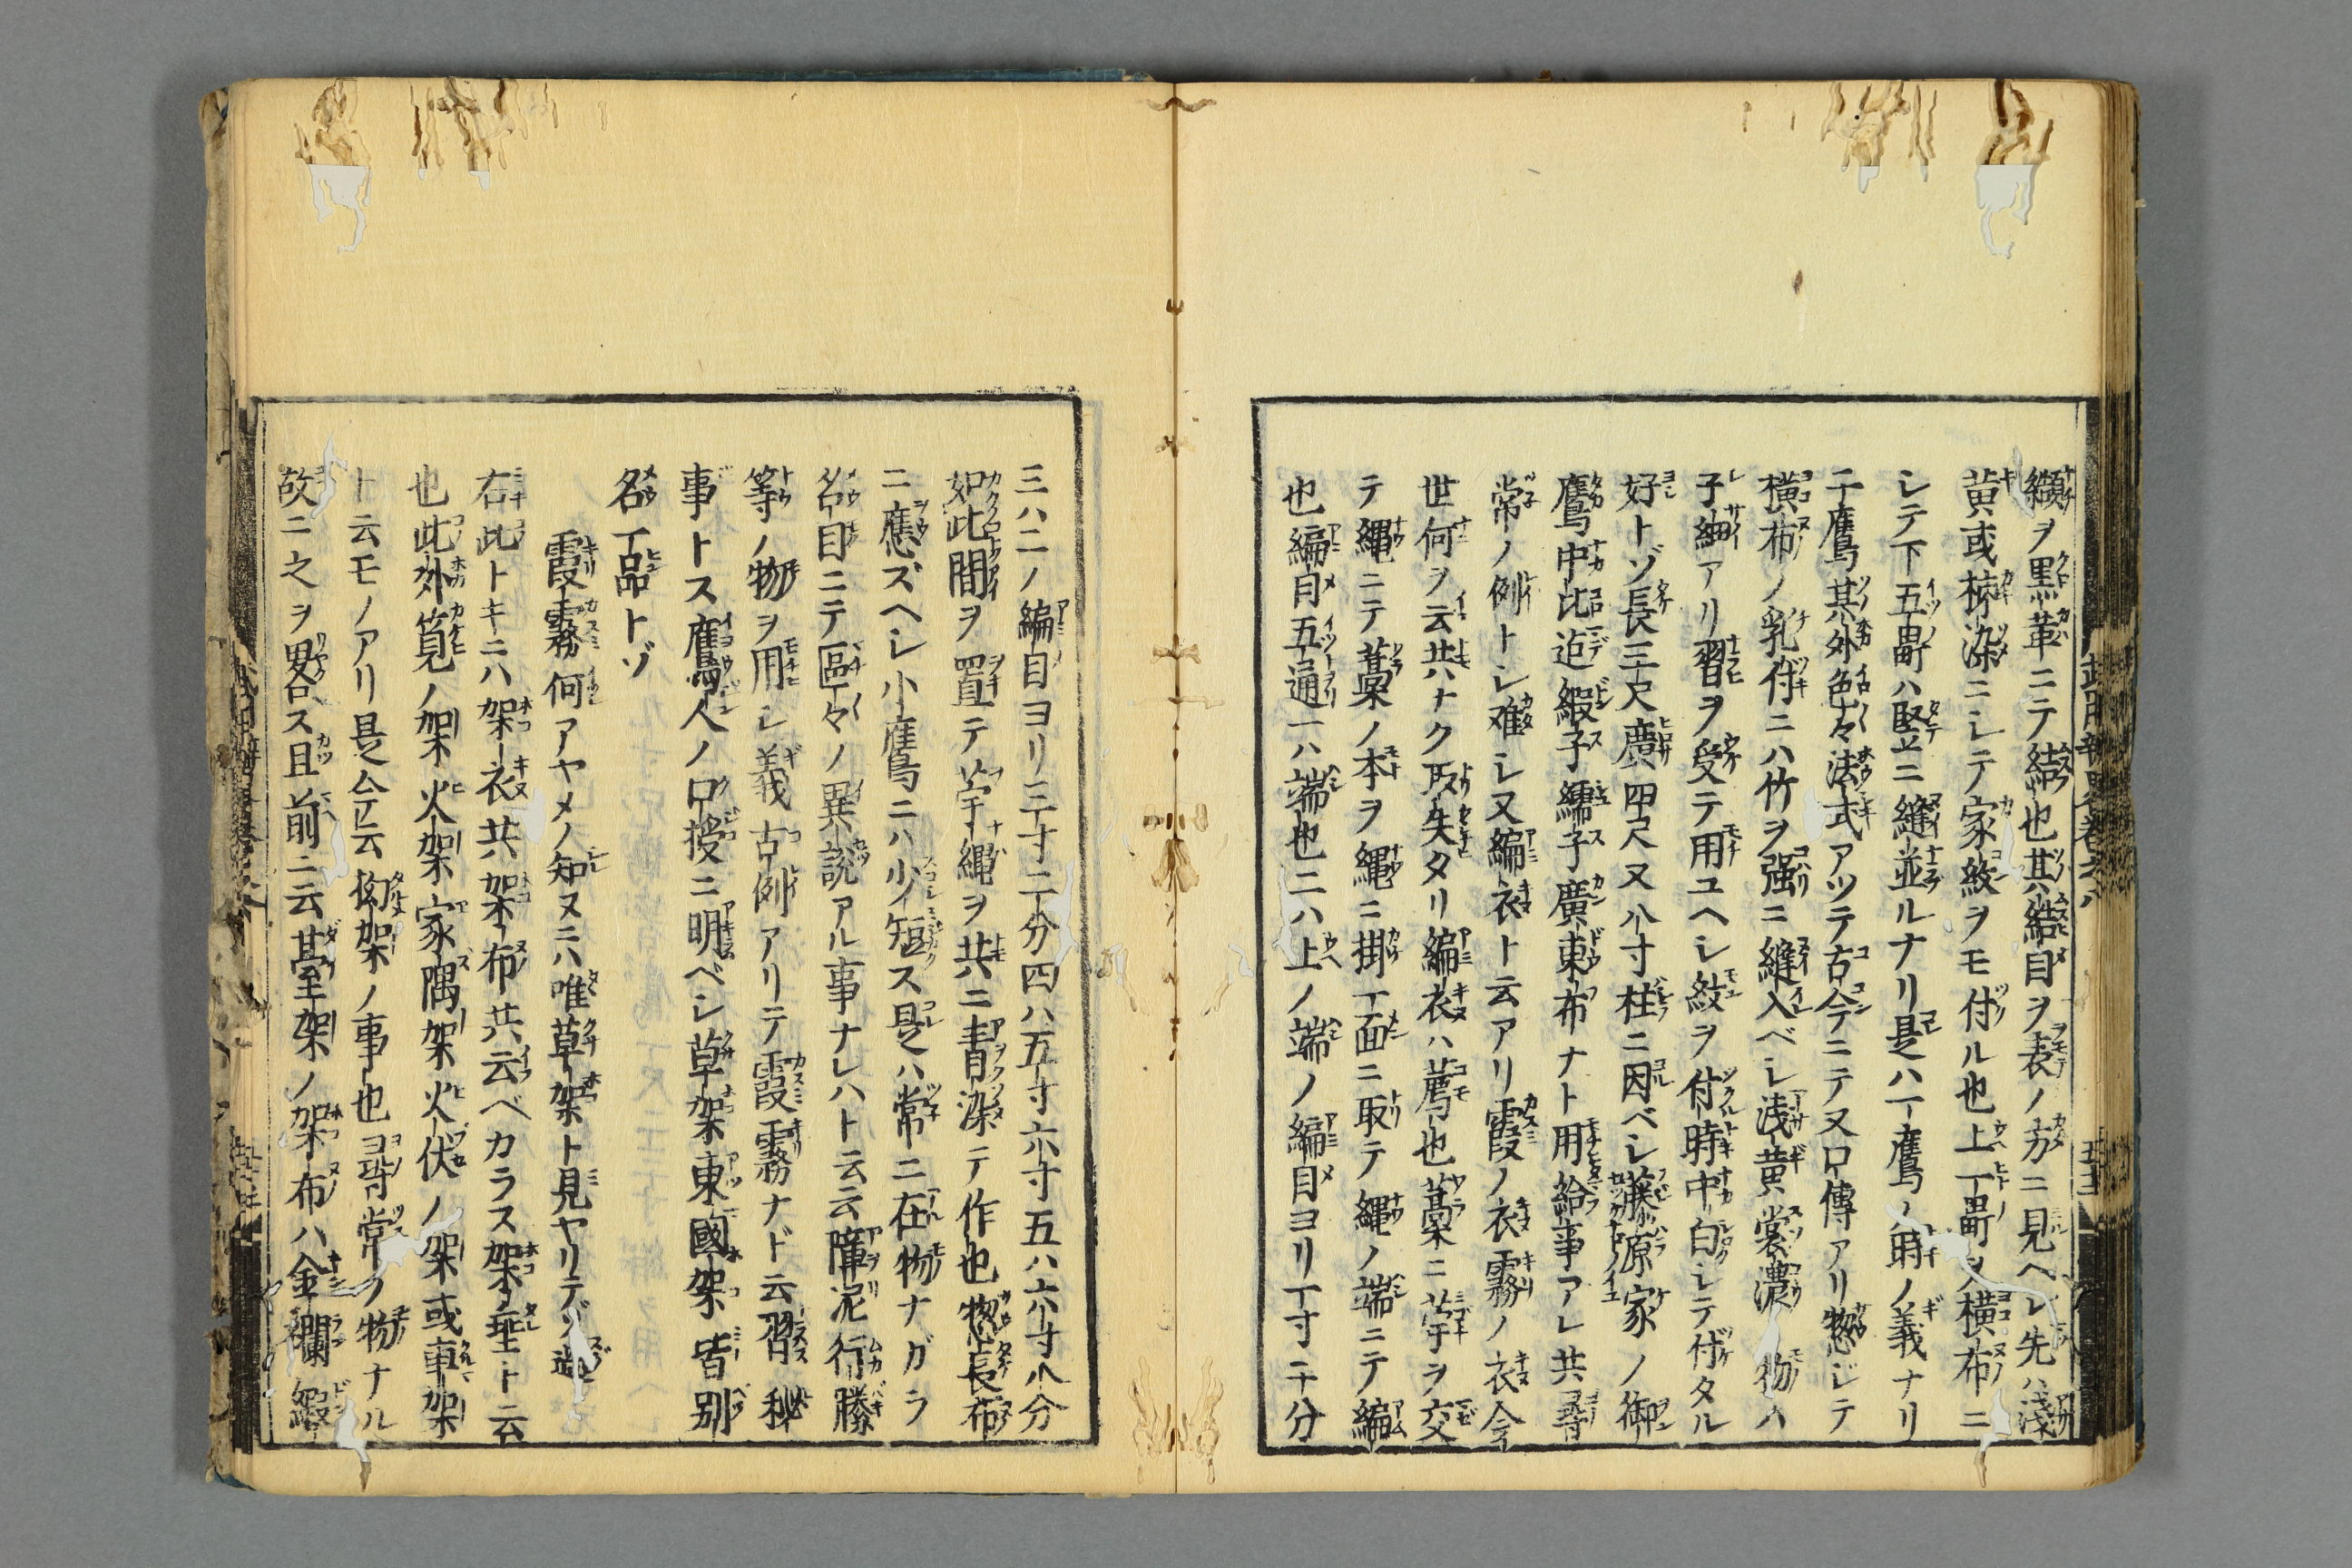 纈ヲ黒革ニテ結也其結目ヲ表ノ方ニ見ヘシ先ハ淺
黄或柿染ニシテ家紋ヲモ付ル也上一幅ヲ横布ニ
シテ下五幅ハ竪ニ縫並ルナリ是ハ一鷹ノ時ノ義ナリ
二鷹其外色々法式アツテ古今ニテ又口傳アリ惣ジテ
横布ノ乳付ニハ竹ヲ強ニ縫入ベシ浅黄裳濃物ハ
子細アリ習ヲ受テ用ユヘシ紋ヲ付時中白シテ付タル
好トゾ長三尺廣四尺又八寸柱ニ因ベシ藤原家ノ御
鷹中比迠緞子繻子廣東布ナト用給事アレ共尋
常ノ例トシ难シ又編衣ト云アリ霞ノ衣霧ノ衣今
世何ヲ云共ナク取失タリ編衣ハ薦也藁ニ芋ヲ交
テ縄ニテ藁ノ本ヲ縄ニ掛一面ニ取テ縄ノ端ニテ編
也編目五通一ハ端也二ハ上ノ端ノ編目ヨリ一寸二分
三ハ二ノ編目ヨリ三寸二分四ハ五寸六寸五ハ六寸八分
如此間ヲ置テ苧縄ヲ共ニ青染テ作也惣長布
ニ應ズヘシ小鷹ニハ少短ス是ハ常ニ在物ナガラ
名目ニテ區々ノ異説アル事ナレハト云云障泥行縢
等ノ物ヲ用シ義古例アリテ霞霧ナド云習秘
事トス鷹人ノ口授ニ明ベシ草架東國架皆别
名一品トゾ
霞霧何アヤメノ知ヌニハ唯草架ト見ヤリテゾ
右此トキニハ架衣共架布共云ベカラス架垂ト云
也此外筧ノ架火架家隅架火伏ノ架或車架
ト云モノアリ是今云架ノ事也尋常ノ物ナル
故ニ之ヲ畧ス且前ニ云臺架ノ架布ハ金襴緞